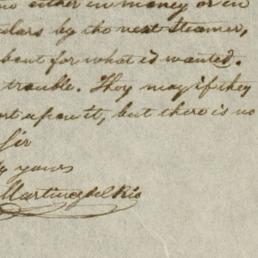 either in money or in
dolars by the next Steamer,
bout for what is wanted.
trouble. They may if they
upon it, but there is no
Sir
yours
Martinez del Rio